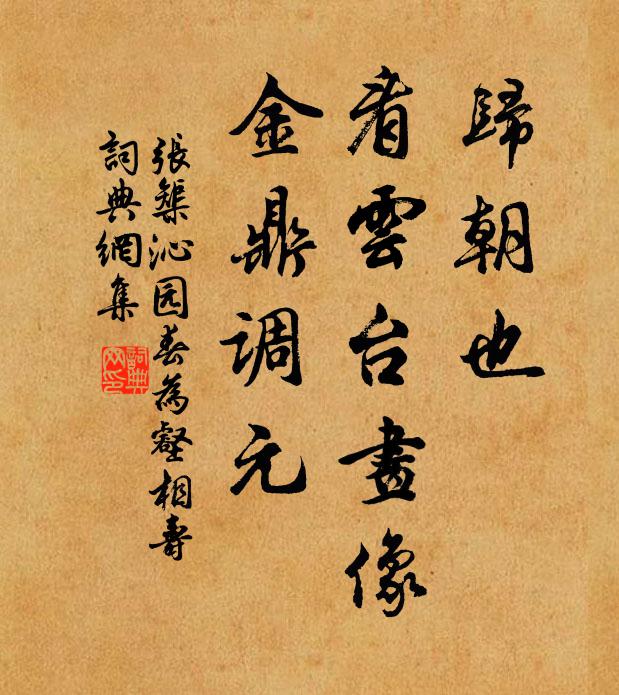 歸朝也
看雲台畫像
金鼎调元
張榘沁园春為壑相壽
詞典網集
詞典网印